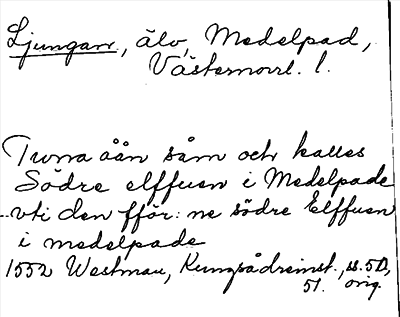 Ljungan, älv, Medelpad,
Västernorrl. l.
Tunna åån såm och kalles
Södre elffuen i Medelpade
- vti den fför: ne södre Elffuen
i medelpade
1552 Westman, Kungsådreinst., ss. 50,
51. orig.